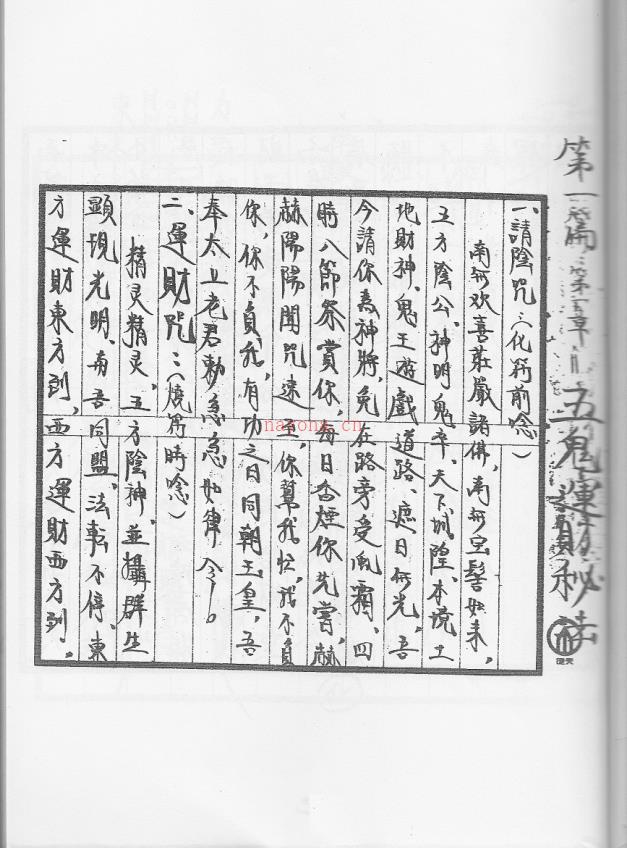 第一篇:第五章=五鬼運財秘法
一、請陰咒:(化符前唸)
南無欢喜莊嚴諸佛,南無宝髻如来,
五方陰公、神明鬼卒、天下城隍、本境土
地財神、鬼王遊戲道路、遮日無光、吾
今請你為神將,免在路旁受風霜、四
時八節祭賞你,每日香煙你先嘗,赫
赫陽陽聞咒速至,你幫我忙,我不負
你,你不負我,有功之日同朝玉皇,吾
奉太上老君勅急急如律令。
二、運財咒:(燒符時唸)
精灵精灵,五方陰神,並攝群生
顯現光明、与吾同盟、法転不停、東
方運財東方到,西方運財西方到。
nayona.cn